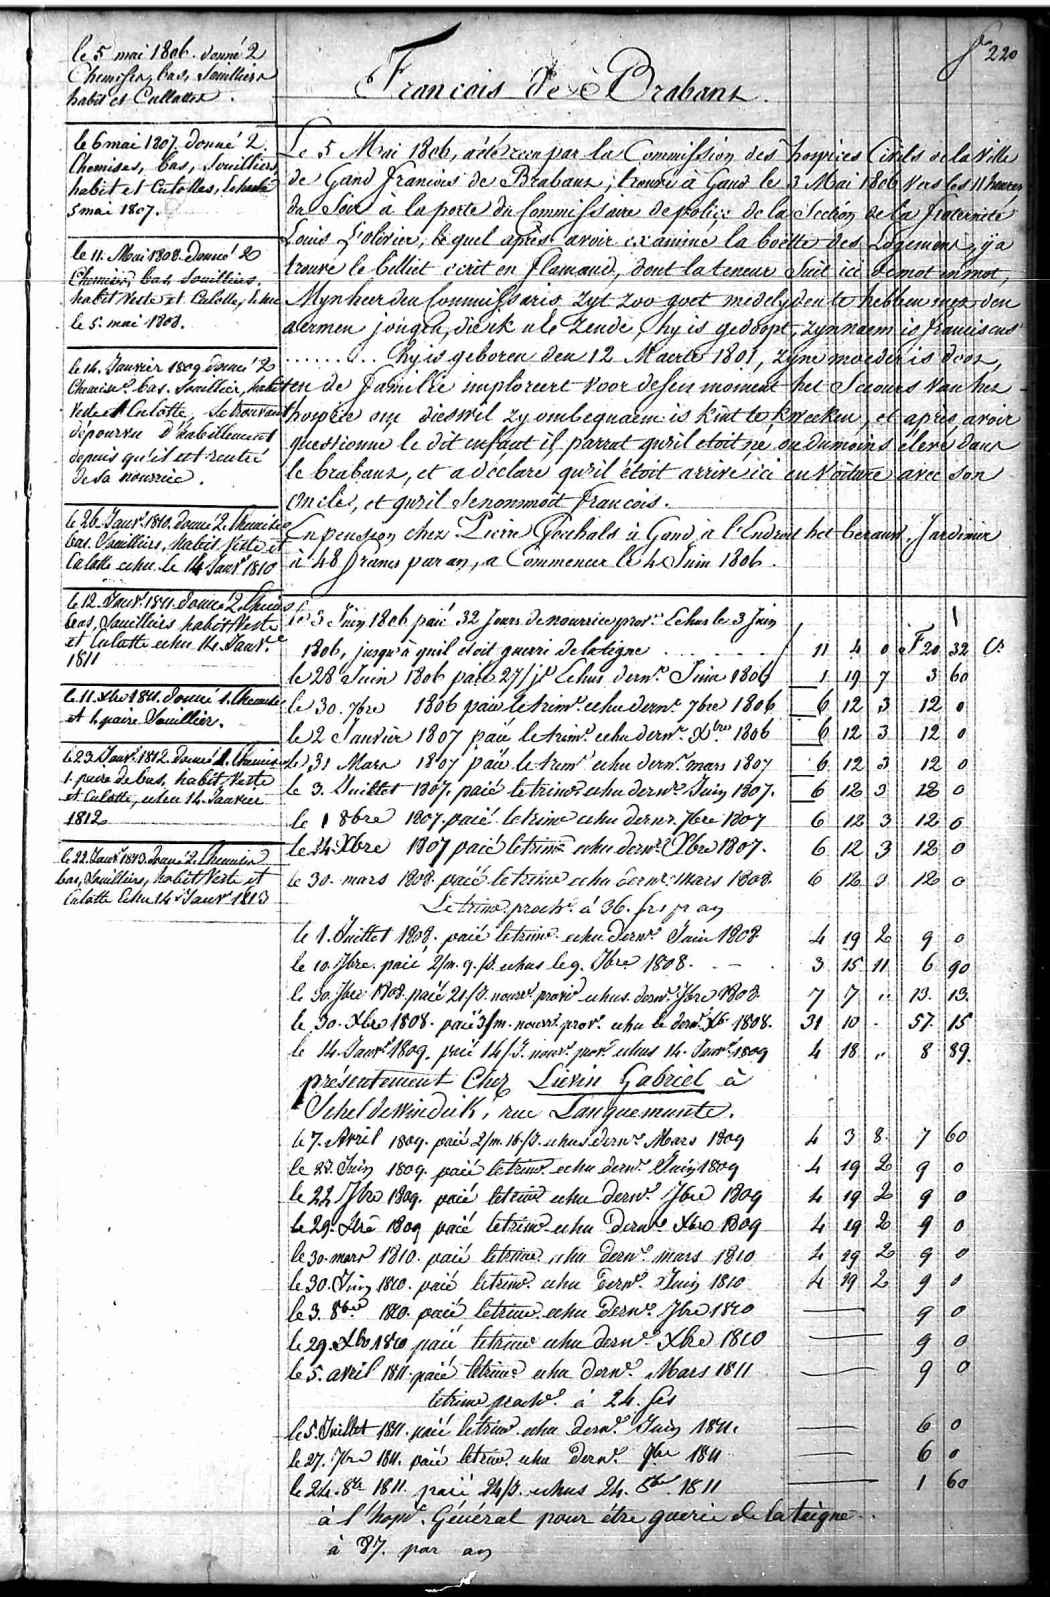 fo 220
le 5 mai 1806. donné 2
Chemises, bas, Souilliers
habit et Culottes.
le 6 mai 1807. donné 2.
Chemises, bas, Souilliers
habit et Culottes, echu le
5 mai 1807.
le 11. Mai 1808 donné 2
Chemises, bas, Souilliers.
habit Veste et Culotte, echu
le 5. mai 1808.
le 16. Janvier 1809 donné 2
Chemises. bas. Souillier, habit
Veste et Culotte, Se trouvant
dépourvu d'habillement
depuis qu'il est rentré
de sa nourrice.
le 26 Janvr. 1810. donné 2 Chemises
bas. Souilliers, habit Veste et
Culotte echu le 14 Janvr 1810
le 12. Janvr. 1811. donné 2. Chemises
bas, Souilliers habit Veste
et Culotte echu 14. Janvr.
1811
le 11. Xbre 1811. donné 1. Chemise
et 1 paire Souillier.
le 23 Janvr. 1812. donné 1. Chemise
1. paire de bas, habit, Veste
et Culotte, echu 14. Janvier
1812
le 22. Janvr 1813. donné 2 Chemises
bas, Souilliers, habit Veste et
Culotte Echu 14 Janvr 1813
Francois de Brabant.
Le 5 Mai 1806, a été recu par la Commission des hospices Civils de la Ville
de Gand Francois de Brabant; trouvé à Gand le 3 Mai 1806 vers les 11 heures
du Soir à la porte du Commissaire de police de la Section de la fraternité
Louis l'olivier, lequel après avoir examiné la boëtte des Logemens, y a
trouvé le billiet ecrit en flamand, dont la teneur Suit ici de mot en mot,
Mynheer den Commissaris zyt zoo goet medelyden te hebben met den
aermen jongen, die ik u le zende, hy is gedoopt, zyn naem is franciscus
. . . . . . . . hy is geboren den 12 Maerte 1801, zyne moeder is doot,
en de familie imploreert voor desen moment het Secours van het
hospice om dieswil zy onbequaem is kint te kweeken, et après avoir
questionné le dit enfant il parrat qu'il etoit né, ou du moins élevé dans
le brabant, et a déclaré qu'il étoit arrivé ici en Voiture avec son
oncle, et qu'il se nommoit francois.
En pension chez Livin Goethals à Gand, à l'Endroit het , Jardinier
à 48 francs par an, a Commencer le 4 Juin 1806.
le 3 Juin 1806 paié 32 Jours de nourrice prov. Echus le 3 Juin
1806, jusqu'à quil etoit gueri de la tigne . . . . . . . 11 4 0 F 20 32 Cs.
le 28 Juin 1806 paié 27/js Echus dernr. Juin 1806 1 19 7 3 60
le 30. 7bre 1806 paié le trimr. echu dernr. 7bre 1806 6 12 3 12 0
le 2 Janvier 1807 paié le trimr. echu dernr. Xbre 1806 6 12 3 12 0
le 31 Mars 1807 paié le trimr echu dernr. mars 1807 6 12 3 12 0
le 3. Juillet 1807. paié le trimr echu dernr. Juin 1807. 6 12 3 12 0
le 1 8bre 1807. paié le trimr echu dernr. 7bre 1807 6 12 3 12 0
le 24. Xbre 1807 paié le trimr echu dernr. Xbre 1807. 6 12 3 12 0
le 30. mars 1808. paié le trimr echu dernr. mars 1808. 6 12 3 12 0
Le trimr. proch. à 36. frs pr an
le 1. Juillet 1808. paié le trimr. echu dernr. Juin 1808 4 19 2 9 0
le 10. 7bre. paié 2/m. 9./J. echus le 9. 7bre 1808. 3 15 11 6 90
le 30. 7bre 1808. paié 21/J. nourr. provr echus dernr. 7bre 1808. 7 7 " 13. 13.
le 30. Xbre 1808. paié 3/m. nourr. provr. echu le dernr. Xbr 1808. 31 10 . 57. 15
le 14. Janvr. 1809. paié 14/J. nourr. provr. echus 14. Janvr. 1809 4 18 " 8 89.
présentement Chez Lievin Gabriel à
Scheldewindeik, rue Languemunte.
le 7. Avril 1809. paié 2/m. 16/J. echus dernr. Mars 1809 4 3 8. 7 60
le 27. Juin 1809. paié le trimr. echu dernr. Juin 1809 4 19 2 9 0
le 22 7bre 1809. paié le trimr echu dernr. 7bre 1809 4 19 2 9 0
le 29. Xbre 1809 paié le trimr echu dernr. Xbre 1809 4 19 2 9 0
le 30. mars 1810. paié le trimr. echu dernr. mars 1810 4 19 2 9 0
le 30. Juin 1810. paié le trimr. echu dernr. Juin 1810 4 19 2 9 0
le 3. 8bre 1810. paié le trimr echu dernr. 7bre 1810 9 0
le 29. Xbre 1810 paié le trimr echu dernr. Xbre 1810 9 0
le 5. avril 1811. paié le trimr echu dernr. Mars 1811 9 0
le trimr proch. à 24. frs
le 5. Juillet 1811. paié le trimr. echu dernr. Juin 1811. 6 0
le 27. 7bre 1811. paié le trimr. echu dernr. 7bre 1811 6 0
le 24. 8bre 1811. paié 24/J. echus 24. 8bre 1811 1 60
à l'hopl. Général pour étre guerie de la teigne.
à 87. par an